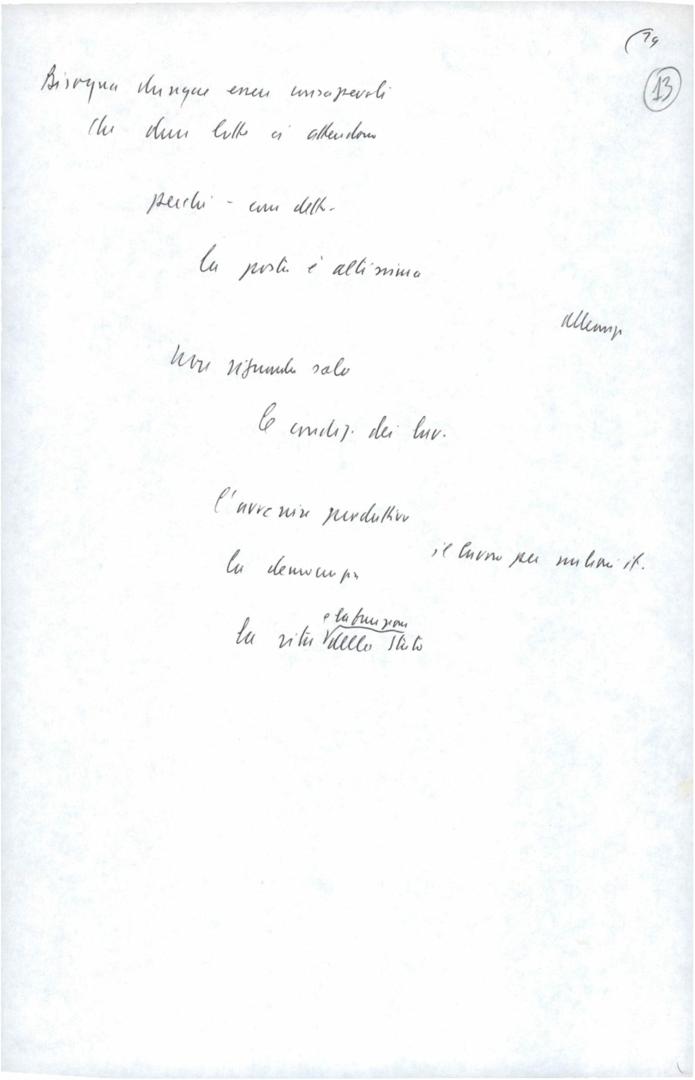 13
Bisogna dunque essere consapevoli
che dure lotte ci attendono
perché - come detto -
la posta è altissima
Non riguarda solo
le condiz. dei lav.
l'avvenire produttivo
il lavoro per milioni it.
la democrazia
e la funzione
la vita dello Stato